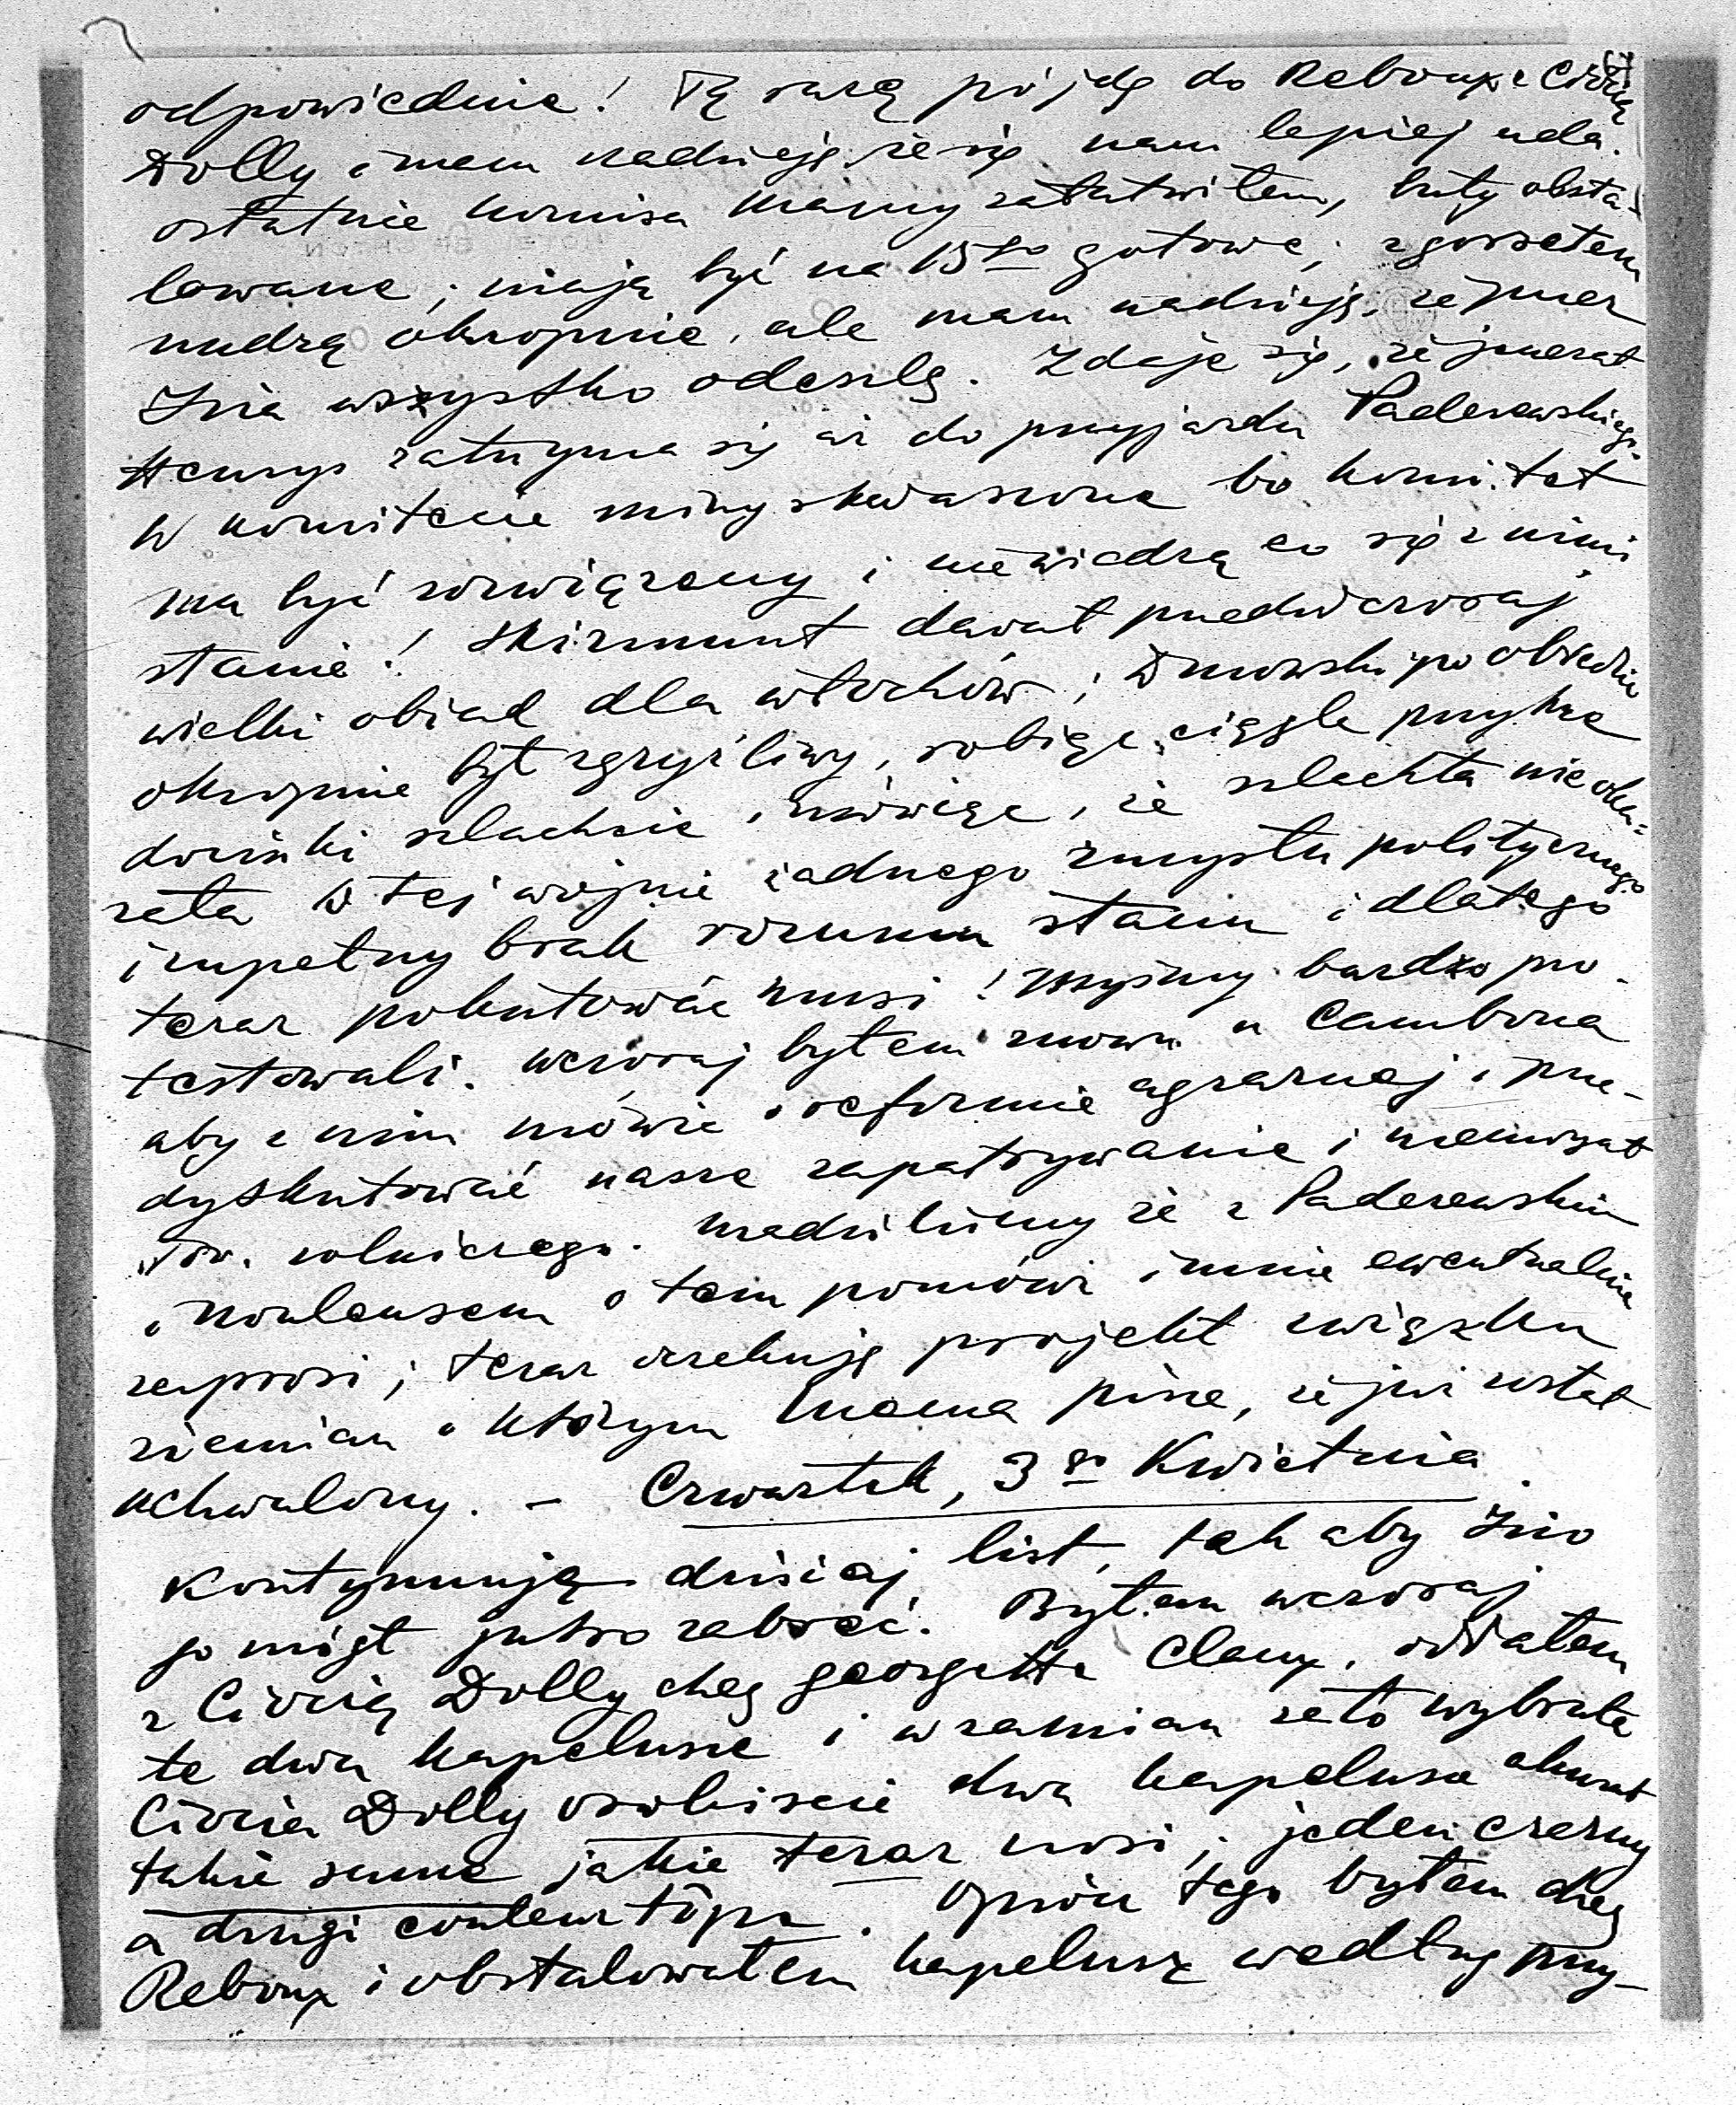 odpowiednie! Tą razą pójdę do Reboux z Ciocią
Dolly i mam nadzieję że się nam lepiej uda.
ostatnie komisa Mamy załatwiłem, buty obsta-
lowane; mają być na 15go gotowe; z gorsetem
nudzą okropnie, ale mam nadzieję, że przez
Inia wszystko odeszlę. Zdaje się, że jenerał
Henrys zatrzyma się aż do przyjazdu Paderewskiego.
W komitecie miny skwaszone bo komitet
ma być rozwiązany i nie wiedzą co się z nimi
stanie! Skirmunt dawał przedwczoraj
wielki obiad dla włochów; Dmowski po obiedzie
okropnie był zgryźliwy, robiąc ciągle przykre
docinki szlachcie, mówiąc, że szlachta nie oka=
zała w tej wojnie żadnego zmysłu politycznego
i zupełny brak rozumu stanu i dlatego
teraz pokutować musi! Myśmy bardzo pro-
testowali. Wczoraj byłem znowu u Cambona
aby z nim mówić o reformie agrarnej i prze-
dyskutować nasze zapatrywanie i memoryał
Tow. rolniczego. Uradziliśmy że z Paderewskim
i Noulensem o tem pomówi i mnie ewentualnie
zaprosi; teraz czekuję projekt związku
ziemian o którym Mama pisze, że już został
uchwalony. – Czwartek, 3go Kwietnia.
Kontynuuję dzisiaj list, tak aby Inio
go mógł jutro zabrać. Byłem wczoraj
z Ciocią Dolly chez Georgette Clany, oddałem
te dwa kapelusze i w zamian za to wybrała
Ciocia Dolly osobiście dwa kapelusze akurat
takie same jakie teraz nosi; jeden czarny
a drugi couleur tôpe. Oprócz tego byłem chez
Reboux i obstalowałem kapelusz według przy-